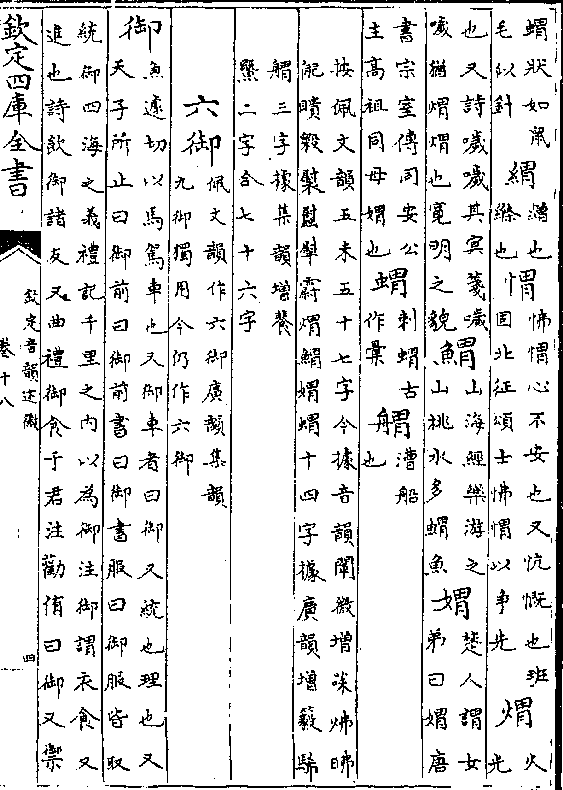 蝟狀如鼠
毛似針
緭繒也
緭也
㥜怫㥜心不安也又忼慨也班
固北征頌士怫㥜以爭先
煟火
光
也又詩噦噦其冥箋噦
噦猶煟煟也寬明之貌
䱵山海經樂游之
山桃水多䱵魚
媦楚人謂女
弟曰媦唐
書宗室傳同安公
主高祖同母媦也
蝟刺蝟古
作彙
艒漕船
也
按佩文韻五未五十七字今據音韻闡微增
十四字據廣韻增
三字據集韻增
二字合七十六字
六御
佩文韻作六御廣韻集韻
九御獨用今仍作六御
御魚遽切以馬駕車也又御車者曰御又統也理也又
天子所止曰御前曰御前書曰御書服曰御服皆取
統御四海之義禮記千里之內以為御注御謂衣食又
進也詩飲御諸友又曲禮御食于君注勸侑曰御又禦
欽定四庫全書
欽定音韻述微
卷十八
四